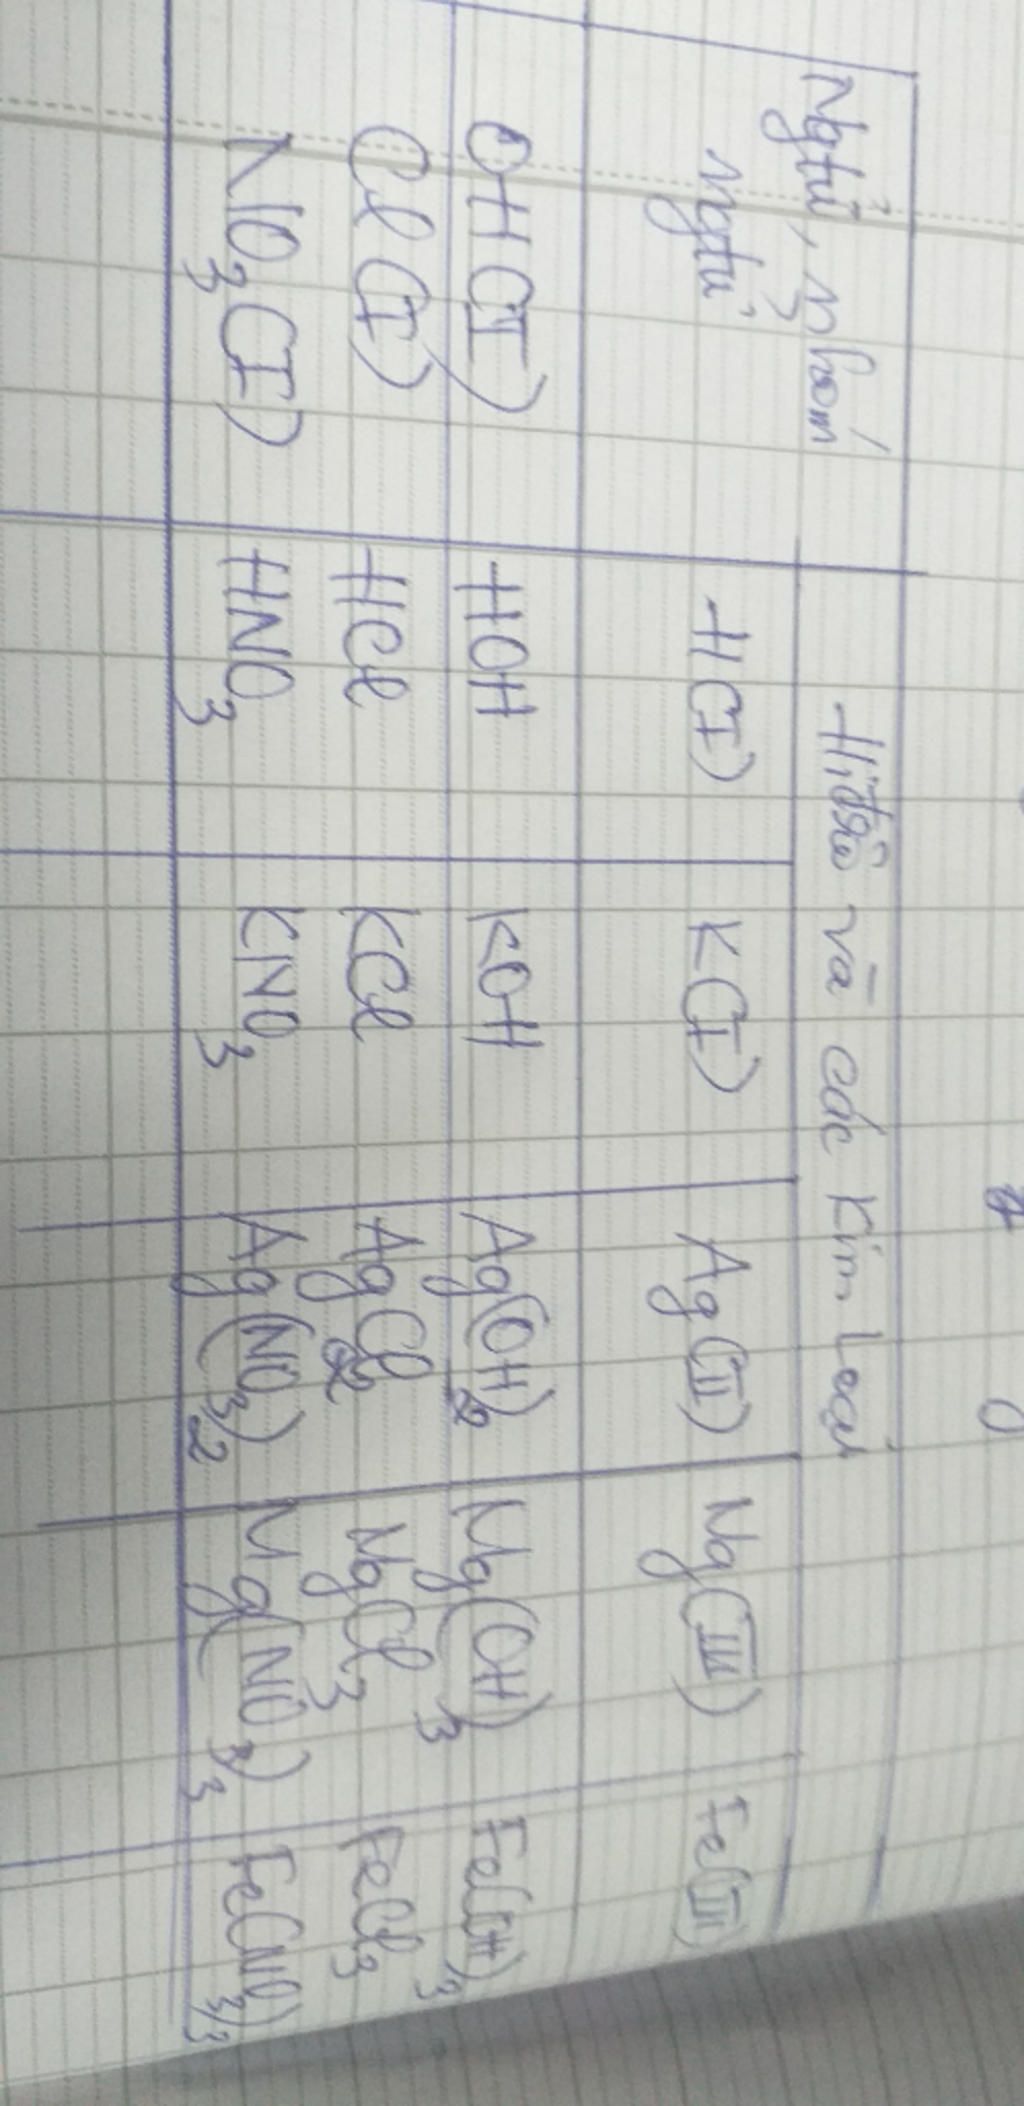 Ngtử, nhóm ngtử
Hiđrô và các Kim Loại
H(I) K(I) Ag(II) Mg(III) Fe(III)
OH(I) HOH KOH Ag(OH)2 Mg(OH)3 Fe(OH)3
Cl(I) HCl KCl AgCl2 MgCl3 FeCl3
NO3(I) HNO3 KNO3 Ag(NO3)2 Mg(NO3)3 Fe(NO3)3